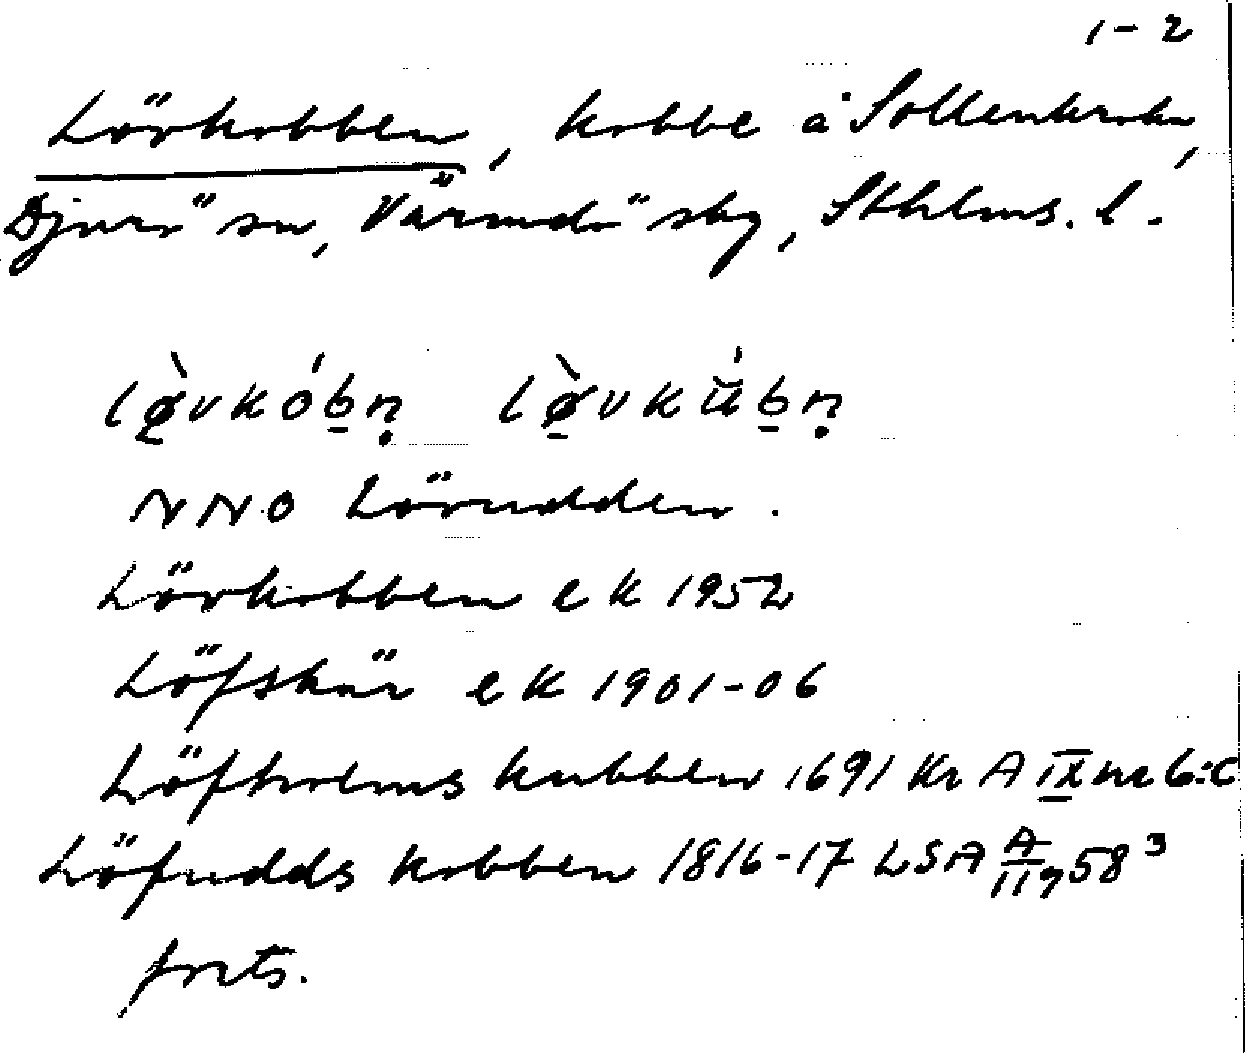 1-2
Lövkobben, kobbe å Sollenkroka,
Djurö sn, Värmdö skg, Sthlms. l.
lø̀vkób̲ṇ lø̀vkú̆b̲ṇ
NNO Lövudden.
Lövkobben ek 1952
Löfskär ek 1901-06
Löfholms kubben 1691 Kr A IX nr 6:c
Löfudds kobben 1816-17 LSA A 119 58³
forts.